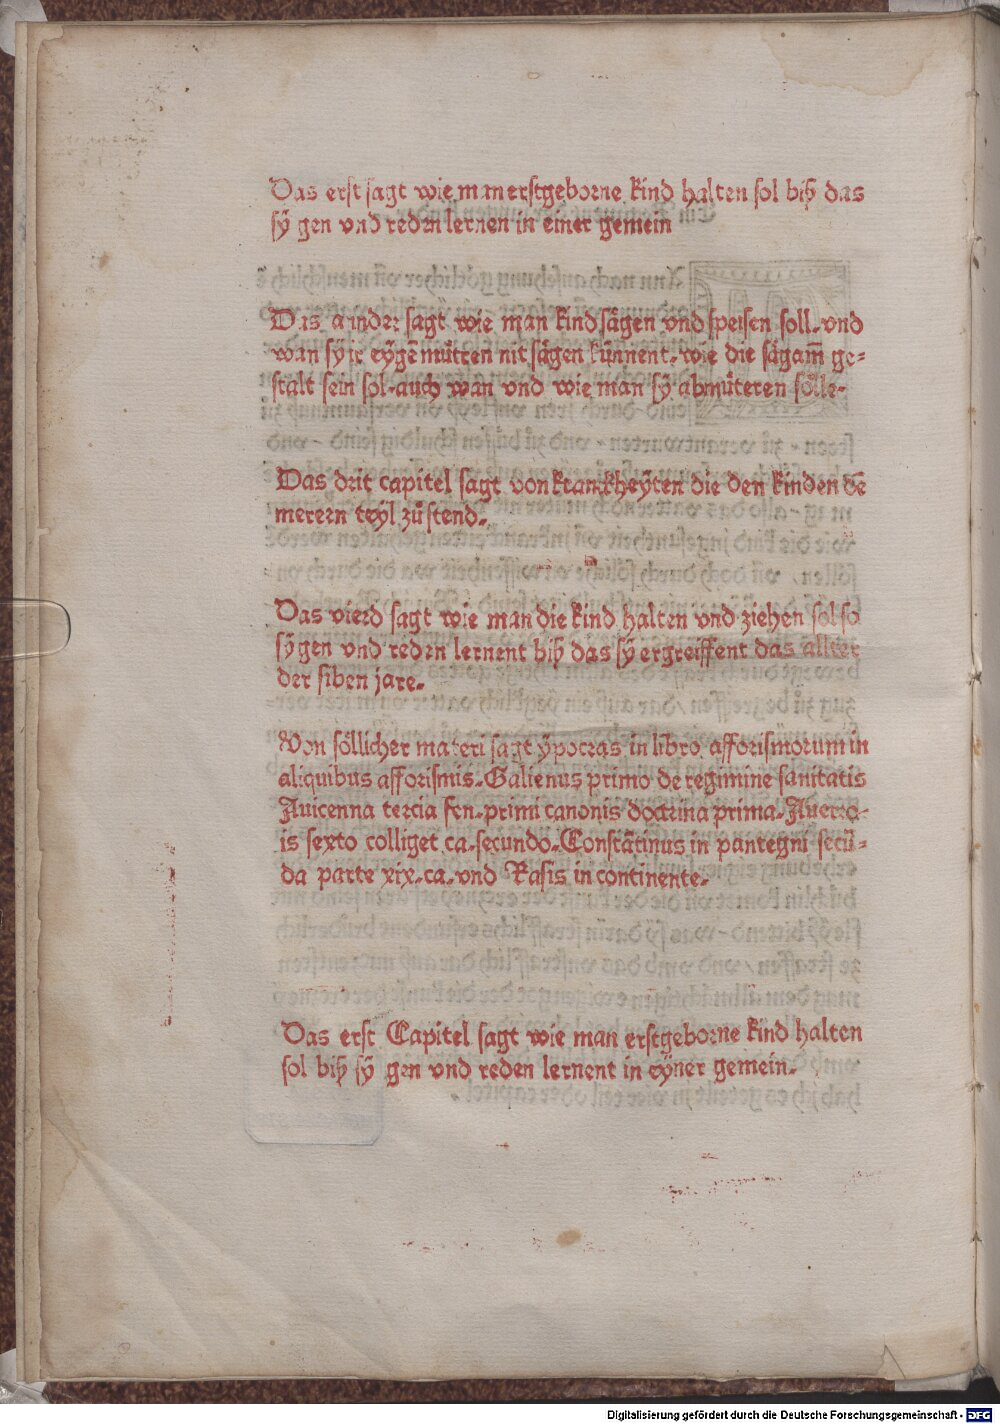 Das erst sagt wie man erstgeborne kind halten sol biß das
sÿ gen vnd reden lernen in einer gemein
Das ander sagt wie man kind saͤgen vnd speisen soll. vnd
wan sÿ ir eÿgē muͤtren nit saͤgen kuͤnnent. wie die saͤgam̄ ge-
stalt sein sol. auch wan vnd wie man sÿ abmuͤteren soͤlle.
Das drit capitel sagt von kranckheÿten die den kinden dē
merern teÿl zuͦ stend.
Das vierd sagt wie man die kind halten vnd ziehen sol so
sÿ gen vnd reden lernent biß das sÿ ergreiffent das allter
der siben jare.
Von soͤllicher materi sagt ÿpocras in libro afforismorum in
aliquibus afforismis. Galienus primo de regimine sanitatis
Auicenna tercia fen. primi canonis doctrina prima. Auerro-
is sexto colliget ca. secundo. Constātinus in pantegni secū-
da parte xix. ca. vnd Rasis in continente.
Das erst Capitel sagt wie man erstgeborne kind halten
sol biß sÿ gen vnd reden lernent in eÿner gemein.
Digitalisierung gefördert durch die Deutsche Forschungsgemeinschaft - DFG